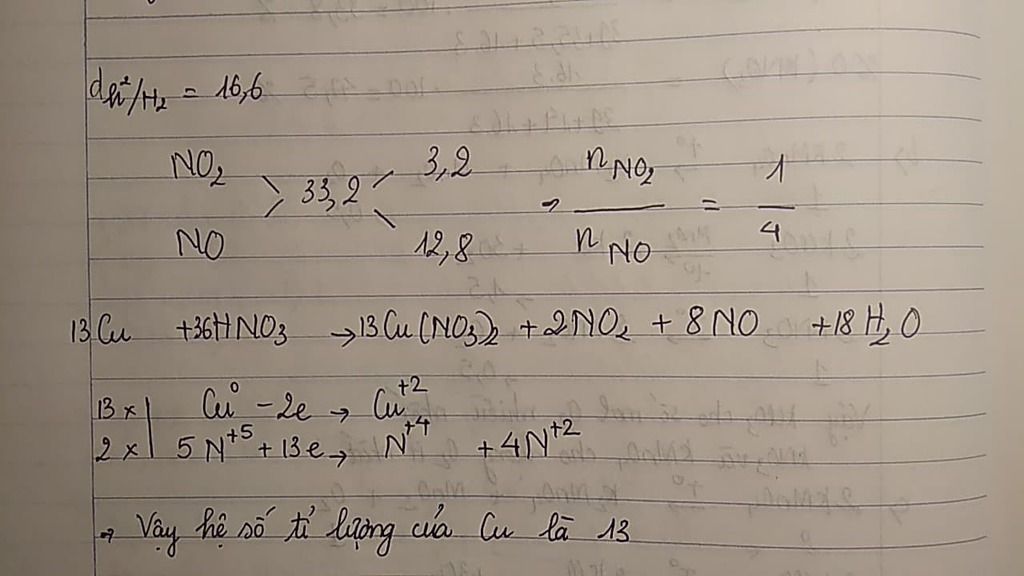 d hỗ²/H₂ = 16,6
NO₂ 3,2 n NO₂ 1
33,2 → = 
NO 12,8 n NO 4
13Cu +36HNO₃ → 13Cu(NO₃)₂ + 2NO₂ + 8NO +18H₂O
13 x | Cu⁰ - 2e → Cu⁺²
2 x | 5N⁺⁵ + 13e → N⁺⁴ + 4N⁺²
→ Vậy hệ số tỉ lượng của Cu là 13